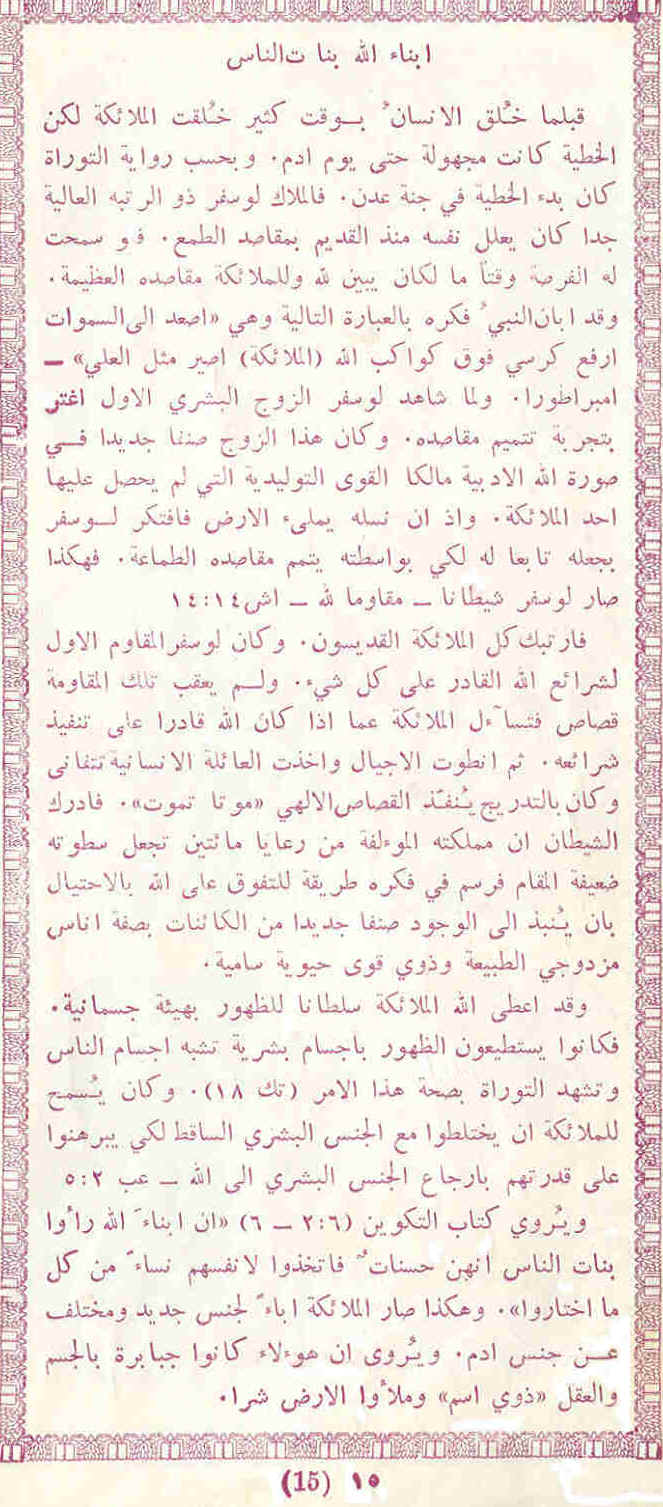 ابناء الله بنات الناس
قبلما خُلق الانسانُ بـوقت كثير خُلقت الملائكة لكن
الخطية كانت مجهولة حتى يوم ادم. وبحسب رواية التوراة
كان بدء الخطية في جنة عدن. فالملاك لوسفر ذو الرتبه العالية
جدا كان يعلل نفسه منذ القديم بمقاصد الطمع. فو سمحت
له الفرصة وقتاً ما لكان يبين لله وللملائكة مقاصده العظيمة.
وقد ابان النبيُ فكره بالعبارة التالية وهي «اصعد الى السموات
ارفع كرسي فوق كواكب الله (الملائكة) اصير مثل العلي» ـ
امبراطورا. ولما شاهد لوسفر الزوج البشري الاول اغتر
بتجربة تتميم مقاصده. وكان هذا الزوج صنفا جديدا فـي
صورة الله الادبية مالكا القوى التوليدية التي لم يحصل عليها
احد الملائكة. واذ ان نسله يملىء الارض فافتكر لـوسفر
بجعله تابعا له لكي بواسطته يتمم مقاصده الطماعة. فهكذا
صار لوسفر شيطانا ـ مقاوما لله ـ اش ١٤:١٤
فارتبك كل الملائكة القديسون. وكان لوسفر المقاوم الاول
لشرائع الله القادر على كل شيء. ولـم يعقب تلك المقاومة
قصاص فتسآءل الملائكة عما اذا كان الله قادرا على تنفيذ
شرائعه. ثم انطوت الاجيال واخذت العائلة الانسانية تتفانى
وكان بالتدريج يُنفّذ القصاص الالهي «موتا تموت». فادرك
الشيطان ان مملكته الموءلفة من رعايا مائتين تجعل سطوته
ضعيفة المقام فرسم في فكره طريقة للتفوق على الله بالاحتيال
بان يُنبذ الى الوجود صنفا جديدا من الكائنات بصفة اناس
مزدوجي الطبيعة وذوي قوى حيوية سامية.
وقد اعطى الله الملائكة سلطانا للظهور بهيئة جسمانية.
فكانوا يستطيعون الظهور باجسام بشرية تشبه اجسام الناس
وتشهد التوراة بصحة هذا الامر (تك ١٨). وكان يُسمح
للملائكة ان يختلطوا مع الجنس البشري الساقط لكي يبرهنوا
على قدرتهم بارجاع الجنس البشري الى الله ـ عب ٥:٢
ويُروي كتاب التكوين (٢:٦ ـ ٦) «ان ابناءَ الله رأوا
بنات الناس انهن حسناتٌ فاتخذوا لانفسهم نساءً من كل
ما اختاروا». وهكذا صار الملائكة اباءً لجنس جديد ومختلف
عـن جنس ادم. ويُروى ان هوءلاء كانوا جبابرة بالجسم
والعقل «ذوي اسم» وملأوا الارض شرا.
١٥ (15)